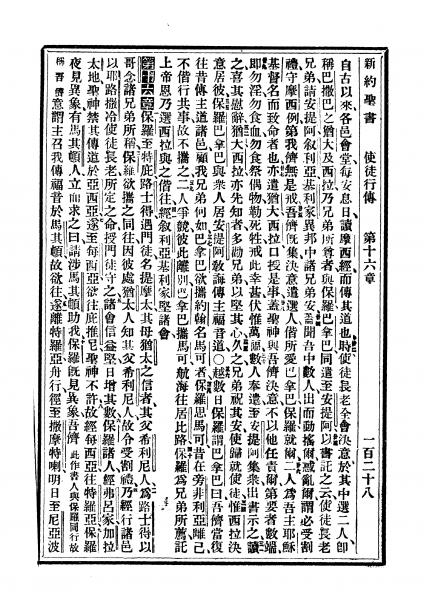 新約聖書　使徒行傳　第十六章　一百二十八
自古以來各邑會堂每安息日讀摩西經而傳其道也時使徒長老全會決意於其中選二人卽
稱巴撒巴之猶大及西拉乃兄弟所尊者與保羅巴拿巴同遣至安提阿以書託之云使徒長老
兄弟請安提阿叙利亞基利家異邦中諸兄弟安聞吾中數人出而動搖爾惑亂爾謂必受割
禮守摩西例第我儕無是戒吾儕旣集決意遣選人偕所愛巴拿巴保羅就爾二人爲吾主耶穌
基督名而致命者也亦遣猶大西拉口授是事蓋聖神與吾儕決意不以他任責爾第要者數端
卽勿淫勿食血勿食祭偶物勒死牲戒此幸甚伏惟萬福數人奉遣至安提阿集衆出書示之讀
之喜其慰辭猶大西拉亦先知者多勸兄弟以堅其心久之兄弟祝其安使歸就使徒惟西拉決
意居彼保羅巴拿巴與衆人居安提阿敎誨傳主福音道○越數日保羅謂巴拿巴曰吾儕當復
往昔傳主道諸邑顧我兄弟何如巴拿巴欲攜約翰名馬可者保羅思馬可昔在旁非利亞離己
不偕行共事故不攜之二人爭競彼此離別巴拿巴攜馬可航海往居比路保羅爲兄弟所薦託
上帝恩乃選西拉與之偕往經叙利亞基利家堅諸會
第十六章保羅至特庇路士得遇門徒名提摩太其母猶太之信者其父希利尼人爲路士得以
哥念諸兄弟所稱保羅欲攜之同往因彼處猶太人知其父希利尼人故令受割禮乃經行諸邑
以耶路撒冷使徒長老所定之命授門徒守之諸會信益堅日增其數保羅諸人經弗呂家加拉
太地聖神禁其傳道於亞西亞遂至每西亞欲往庇推尼聖神不許故經每西亞往特羅亞保羅
夜見異象有馬其頓人立而求之曰請涉馬其頓助我保羅旣見異象吾儕此作書人與保羅同行故
稱吾儕意謂主召我傳福音於馬其頓故欲往遂離特羅亞舟行徑至撒摩特喇明日至尼亞波